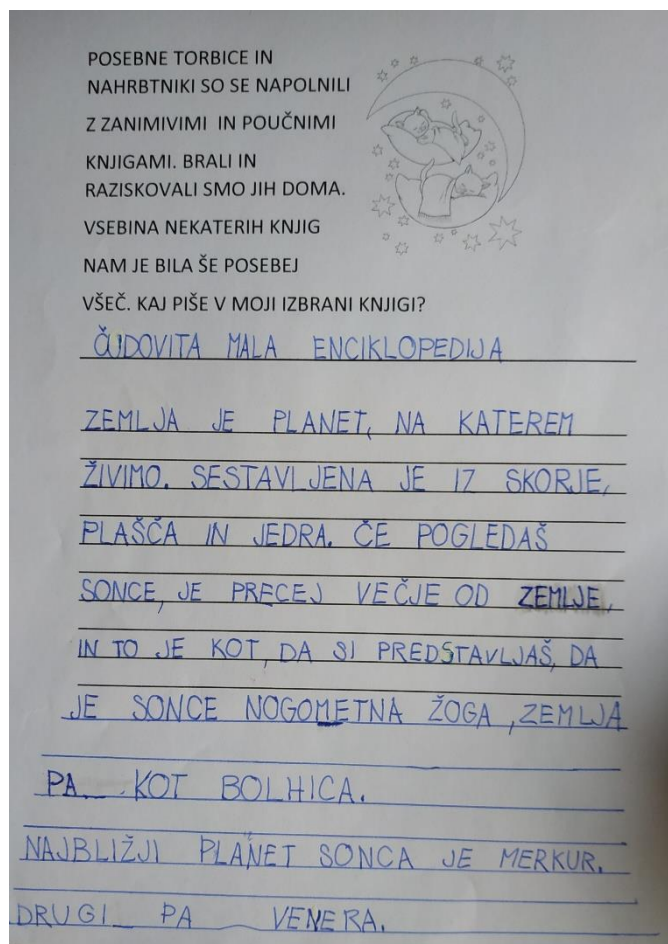 POSEBNE TORBICE IN
NAHRBTNIKI SO SE NAPOLNILI
Z ZANIMIVIMI IN POUČNIMI
KNJIGAMI. BRALI IN
RAZISKOVALI SMO JIH DOMA.
VSEBINA NEKATERIH KNJIG
NAM JE BILA ŠE POSEBEJ
VŠEČ. KAJ PIŠE V MOJI IZBRANI KNJIGI?
ČUDOVITA MALA ENCIKLOPEDIJA
ZEMLJA JE PLANET, NA KATEREM
ŽIVIMO. SESTAVLJENA JE IZ SKORJE,
PLAŠČA IN JEDRA. ČE POGLEDAŠ
SONCE, JE PRECEJ VEČJE OD ZEMLJE,
IN TO JE KOT, DA SI PREDSTAVLJAŠ, DA
JE SONCE NOGOMETNA ŽOGA, ZEMLJA
PA KOT BOLHICA.
NAJBLIŽJI PLANET SONCA JE MERKUR.
DRUGI PA VENERA.